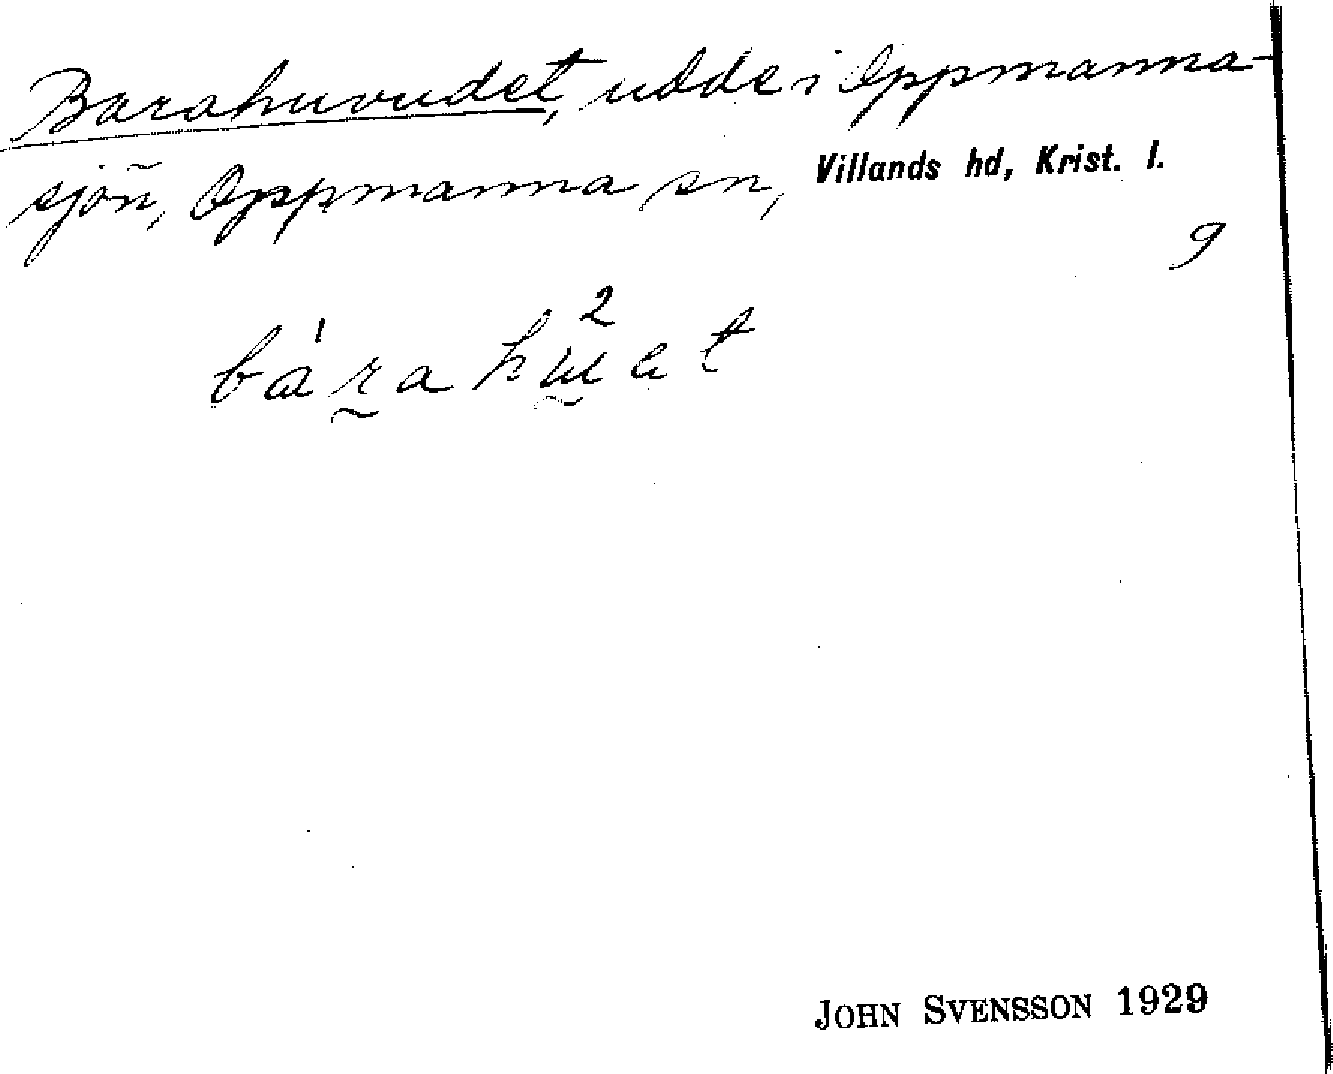 Barahuvudet, udde i Oppmanna-
sjön, Oppmanna sn, Villands hd, Krist. l.
9
2
bárahuet
JOHN SVENSSON 1929